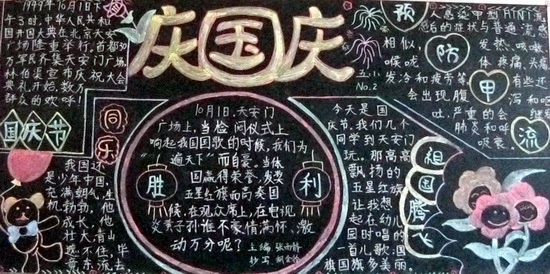 庆国庆
1949年10月1日下
午3时,中华人民共和
国开国大典在北京天安
门广场隆重举行,首都30
万军民齐集天安门广场,
林伯渠宣布庆祝大会
典礼开始,数万
群众的欢呼!
国庆节
同乐
我国还
是少年中国,
充满朝气,生
机勃勃,他
成长,他
壮大,青山
遮不住,毕
竟东流去
10月1日,天安门
广场上,当检阅仪式上
响起我国国歌的时候,我们为
遍天下"而自豪。当体
国赢得荣誉、发奖
五星红旗而高奏国
候,在观众席上,在电视
炎黄子孙谁不豪情满怀、激
动万分呢?
胜利
主编 张雨
抄写
预防甲流
人感染甲型H1N1流
感后的症状与普通流感
相似,
发热、咳嗽、
喉咙
体疼痛、头痛、
发冷和疲劳等,
有些还
会出现腹
泻和呕
吐,严重的会
肺炎和呼
吸衰
五.(1)
No.2
今天是国
庆节,我们几个
同学到天安门
玩,那高高
飘扬的
五星红旗
让我想
起在幼儿
园时唱的
一首儿歌:国
旗国旗多美丽。
祖国腾飞